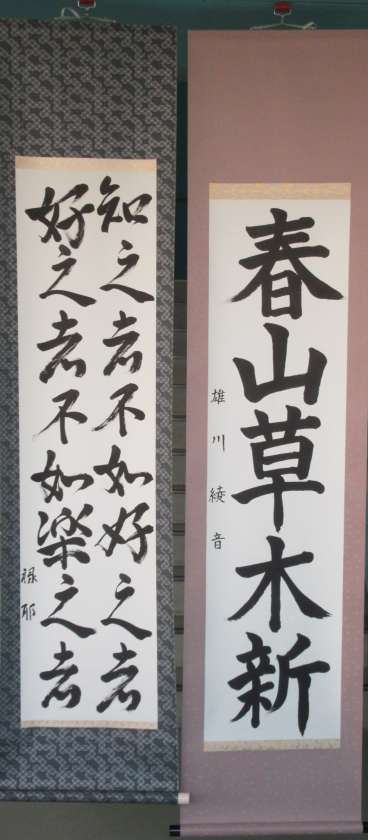 春山草木新
雄川綾音
知之者不如好之者
好之者不如楽之者
禄耶